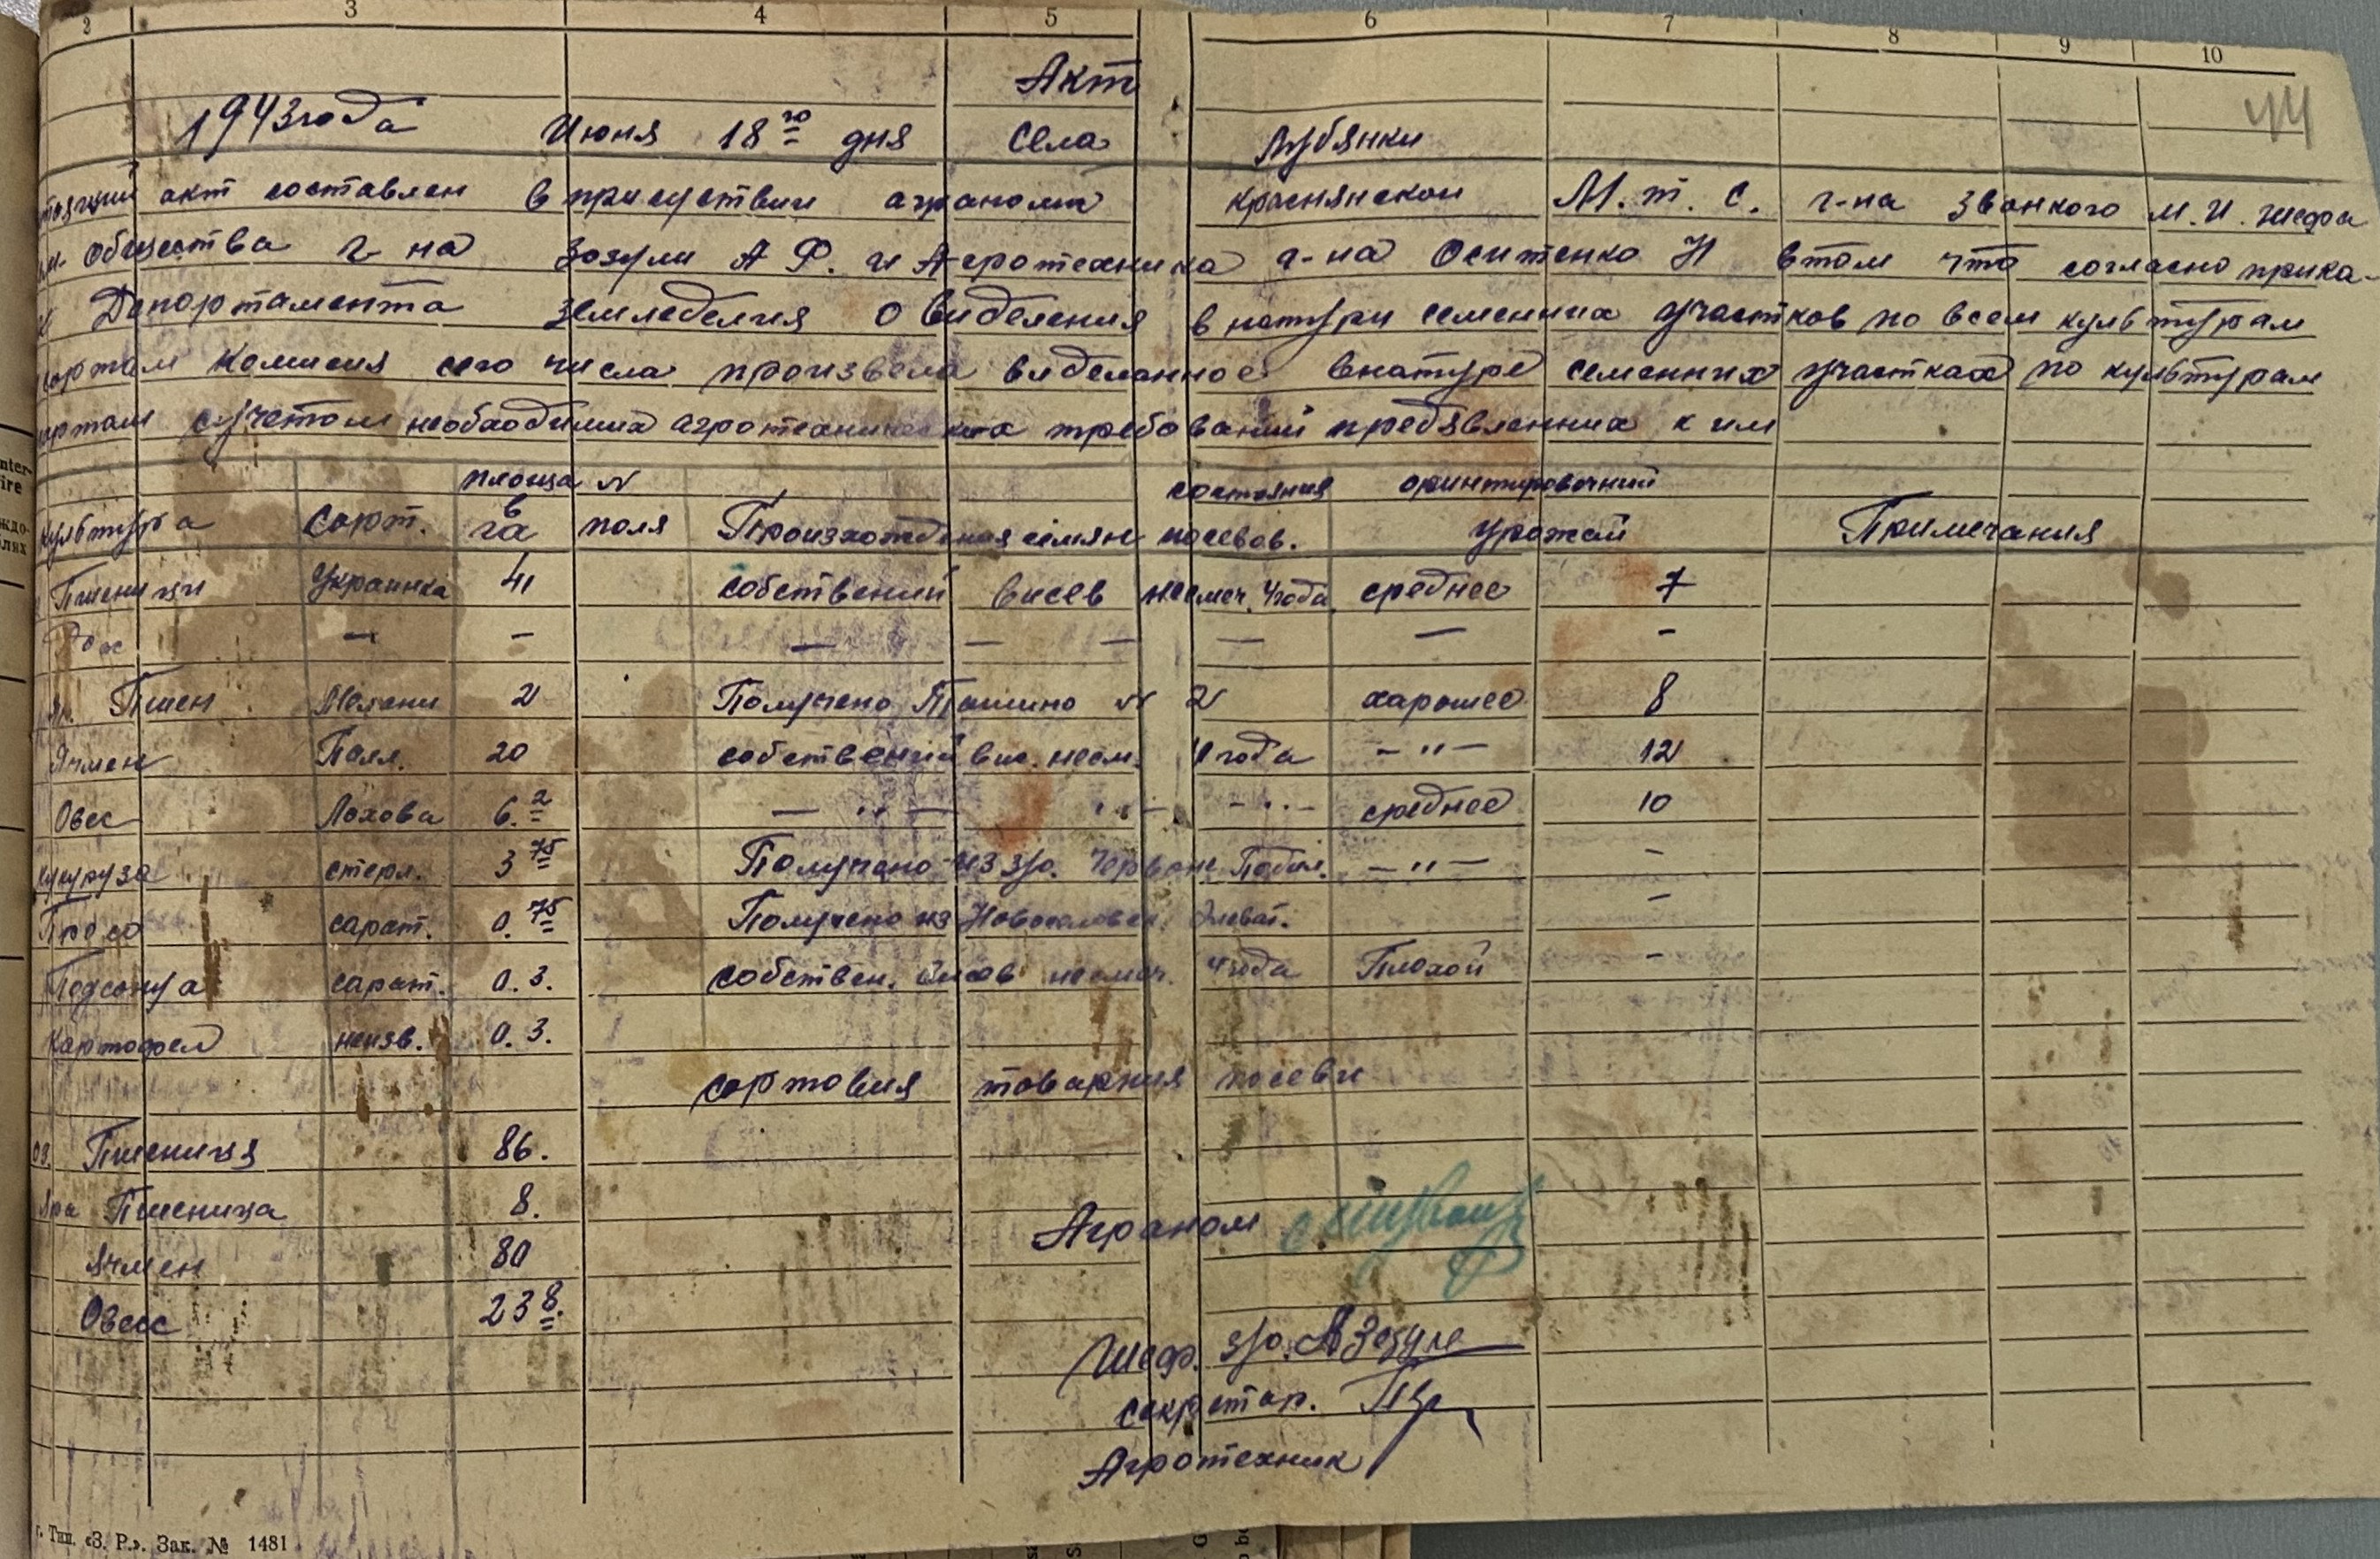 2 3 4 5 6 7 8 9 10
44
Акт
1943 года Июня 18го дня Села Лубянки
акт составлен в присуствии агранома краснянской М.т.с. г-на Званкого М.И. шефа
общества г-на Зозули А Ф. и Агротехника г-на Оситенко И втом что согласно прика-
Департамента земледелия о виделения в натури семенних участков по всем культурам
комисия сего числа произвела виделанное внатуре семенних участках по культурам
сучетом необходимих агротехнических требований предявленних к им
культура сорт. площа в га N поля Произхождения семян состояния посевов. оринтировочний урожай Примечания
Пшеници Украинка 41 собствений висев несмеч. 4 года среднее 7
Рож — – — — — — — –
Яр. Пшен Мелени 2 Получено N 2 харошее 8
Ячмен Палл. 20 собственний вис. несм. 4 года – " – 12
Овес Лохова 6.2 — " — " — – " – среднее 10
кукуруза стерл. 3 75 Получено из з/о. Червон. Побил. – " – –
Просо сарат. 0.75 Получено из Элеват. –
Подсонуа сарат. 0.3. собствен. висев несмеч. 4 года Плохой –
картофел неизв. 0.3.
сортовия товарния посеви
оз. Пшениця 86.
яра Пшеница 8.
ячмен 80
Овес 23 8.
Аграном
Шеф. з/о. А Зозуле
секретар.
Агротехник
г. Тип. «З. Р.». Зак. № 1481